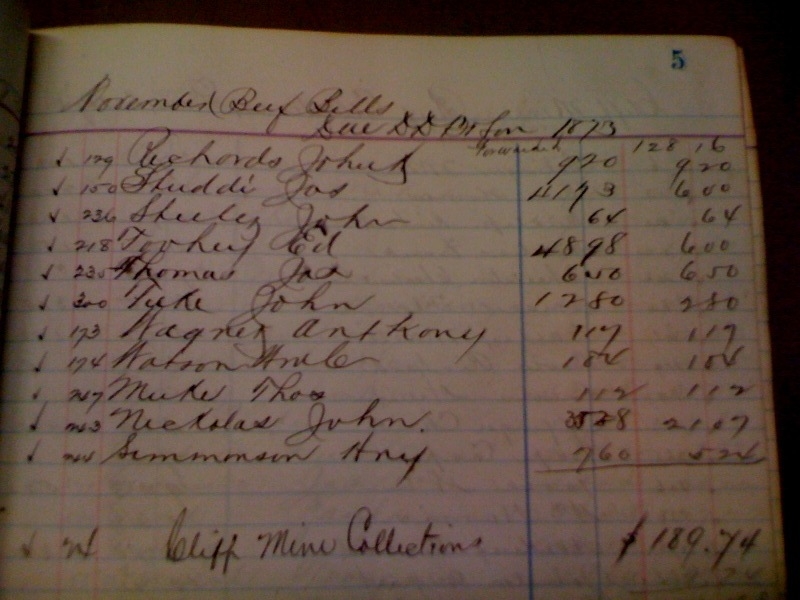 5
November Beef Bills
Due DD Br for 1873
forwarded 128 16
√ 129 Richards John 920 920
√ 150 Studdi Jas 4193 600
√ 236 John 64 64
√ 218 Toohey Ed 4898 600
√ 235 Thomas Jas 650 650
√ 300 Tuke John 1280 280
√ 173 Wagner Anthony 117 117
√ 174 Watson 104 104
√ Muke Thos 112 112
√ 263 Nickolas John. 2107
√ Simmonson Hny 760 524
√ Cliff Mine Collections $189.74